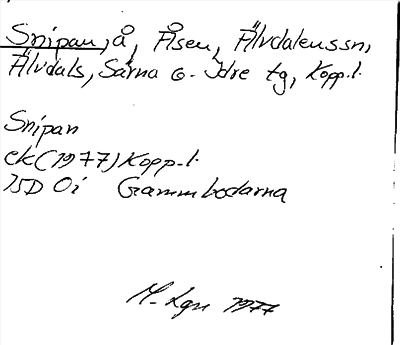 Snipan, å, Åsen, Älvdalens sn,
Älvdals, Särna o. Idre tg, Kopp. l.
Snipan
ek (1977) Kopp. l.
15D 0i Grammbodarna
M. Lgn 1977